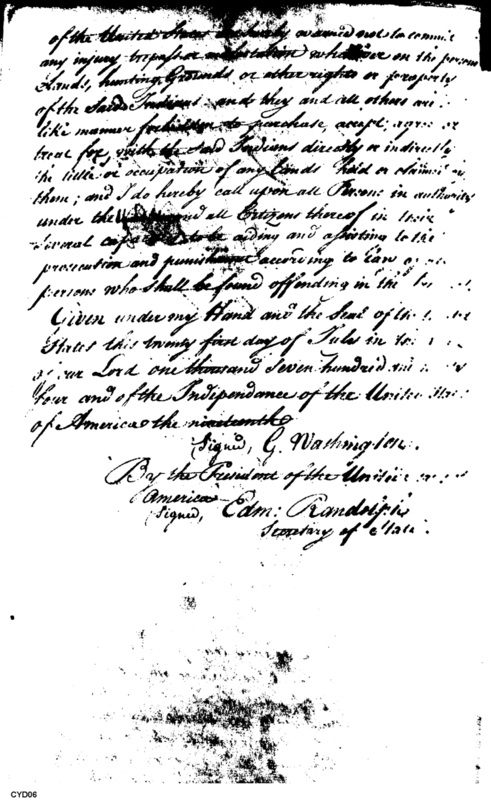 of the United States hereby warned not to commit
any injury trespass or molestation whatever on the persons
Lands, hunting Grounds, or other rights or property
of the Said Indians: and they and all others are
like manner forbidden to purchase, accept, agree or
treat for, with the Said Indians directly or indirectly
the title or occupation of any lands held or claimed
them; and I do hereby call upon all Persons in authority
under the and all Citizens thereof in their
several to be aiding and assisting to the
prosecution and punishment according to Law
persons who shall be found offending in the
Given under my Hand and the Seal of the
States this twenty first day of July in
our Lord one thousand Seven hundred
four and of the Independance of the United States
of America the nineteenth
Signed, G. Washington.
By the President of the United
America
Signed, Edm: Randolph
Secretary of State.
CYD06